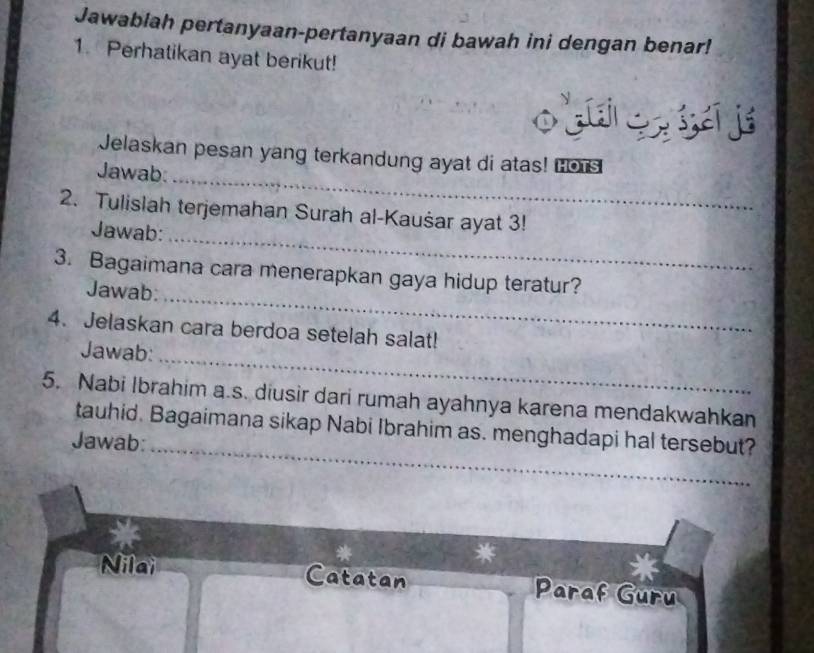 Jawablah pertanyaan-pertanyaan di bawah ini dengan benar!
1. Perhatikan ayat berikut!
قُلْ اَعُوْذُ بِرَبِّ الْفَلَقِۙ ۝١
Jelaskan pesan yang terkandung ayat di atas! HOTS
Jawab:
2. Tulislah terjemahan Surah al-Kauśar ayat 3!
Jawab:
3. Bagaimana cara menerapkan gaya hidup teratur?
Jawab:
4. Jelaskan cara berdoa setelah salat!
Jawab:
5. Nabi Ibrahim a.s. diusir dari rumah ayahnya karena mendakwahkan
tauhid. Bagaimana sikap Nabi Ibrahim as. menghadapi hal tersebut?
Jawab:
Nilai
Catatan
Paraf Guru